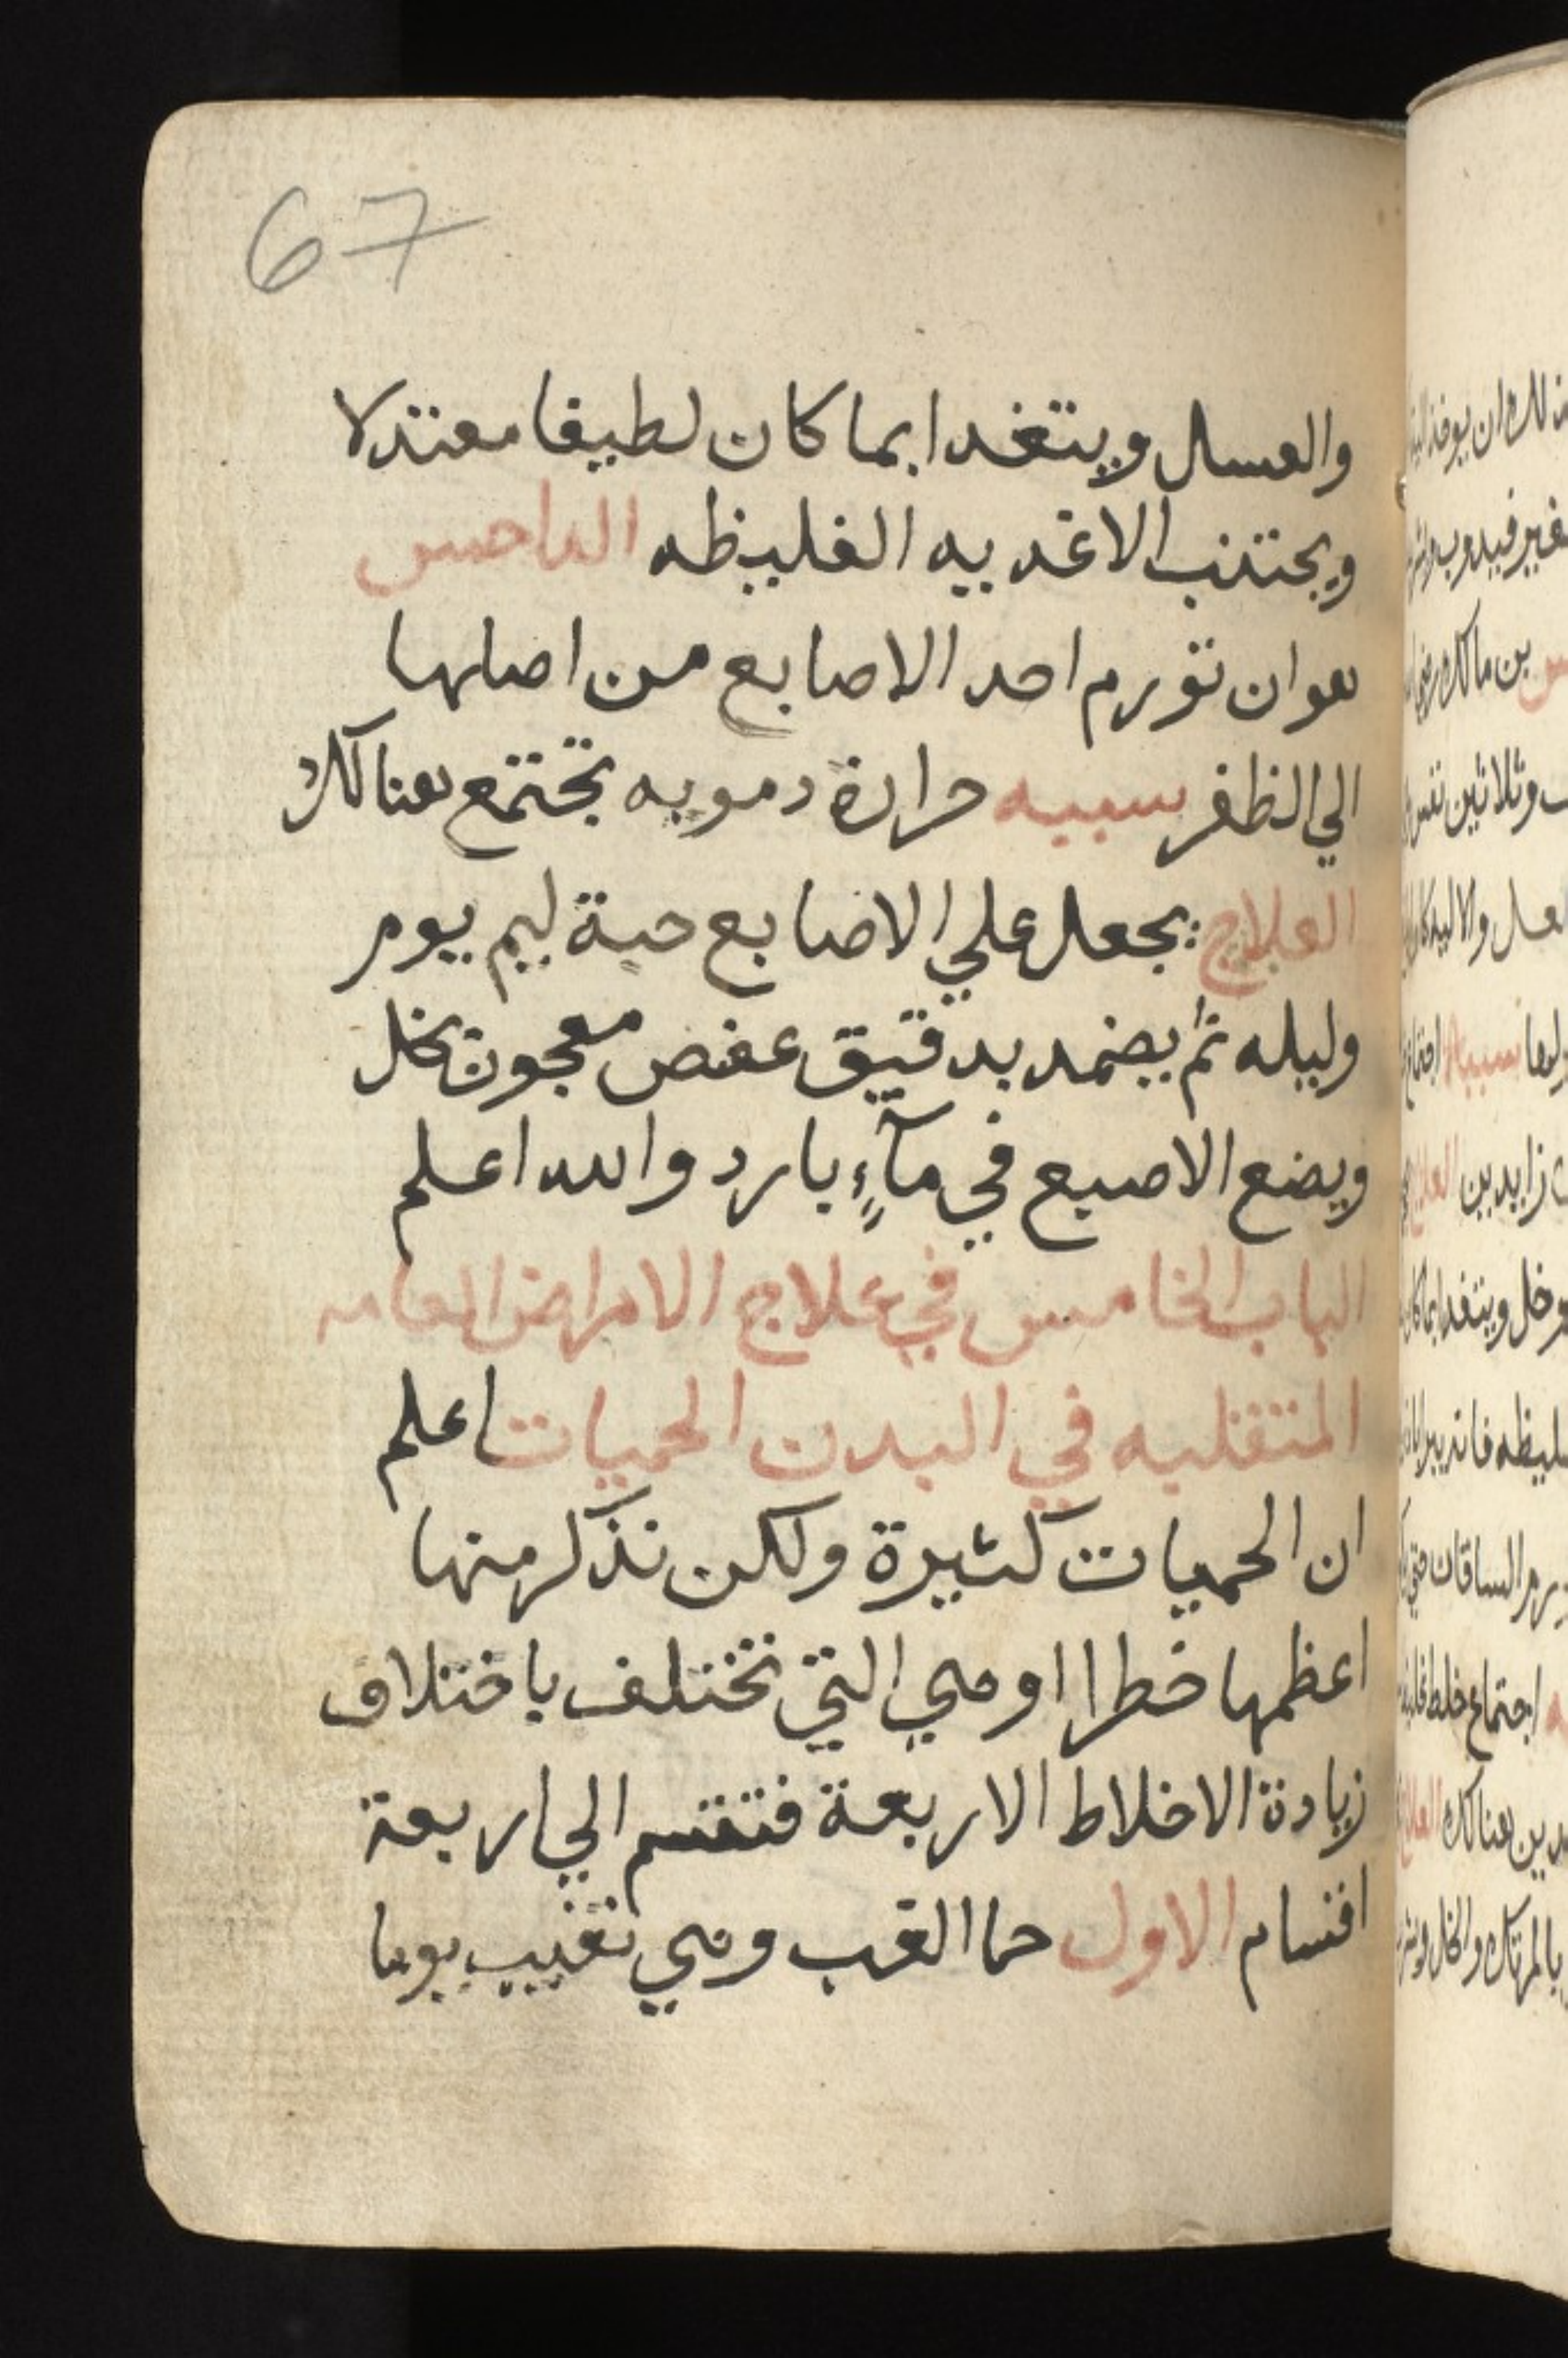 67
والعسل ويتغدا بما كان لطيفا معتدلا
ويجتنب الاغديه الغليظه الداحس
هو ان تورم احد الاصابع من اصلها
الي الظفر سببه حرارة دمويه تجتمع هنالك
العلاج يجعل علي الاصابع حبة ليم يوم
وليله ثم يضمد بدقيق عفص معجون بخل
ويضع الاصبع في مآءٍ بارد والله اعلم
الباب الخامس في علاج الامراض العامه
المتنقليه في البدن الحميات اعلم
ان الحميات كثيرة ولكن نذكر منها
اعظمها خطرا وهي التي تختلف باختلاف
زيادة الاخلاط الاربعة فتقسم الي اربعة
اقسام الاول حما الغب وهي تغيب يوما